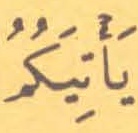 يَأْتِيَكُمُ